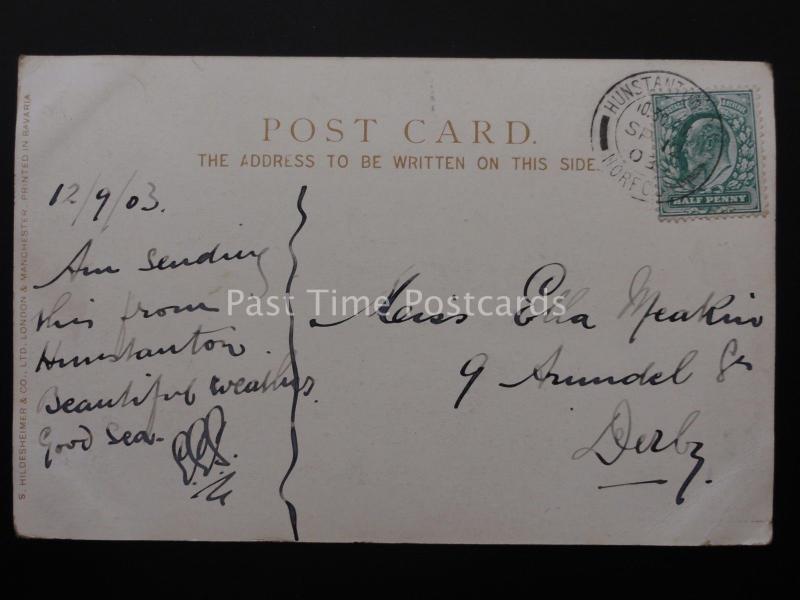 POST CARD.
THE ADDRESS TO BE WRITTEN ON THIS SIDE.
HUNSTANTON
SP
03
NORFOLK
HALF PENNY
12/9/03.
Am sending
this from
Hunstanton.
Beautiful weather.
Good Sea.
Miss Ella Meakin
9 Arundel St
Derby.
Past Time Postcards
S. HILDESHEIMER & CO., LTD. LONDON & MANCHESTER. PRINTED IN BAVARIA